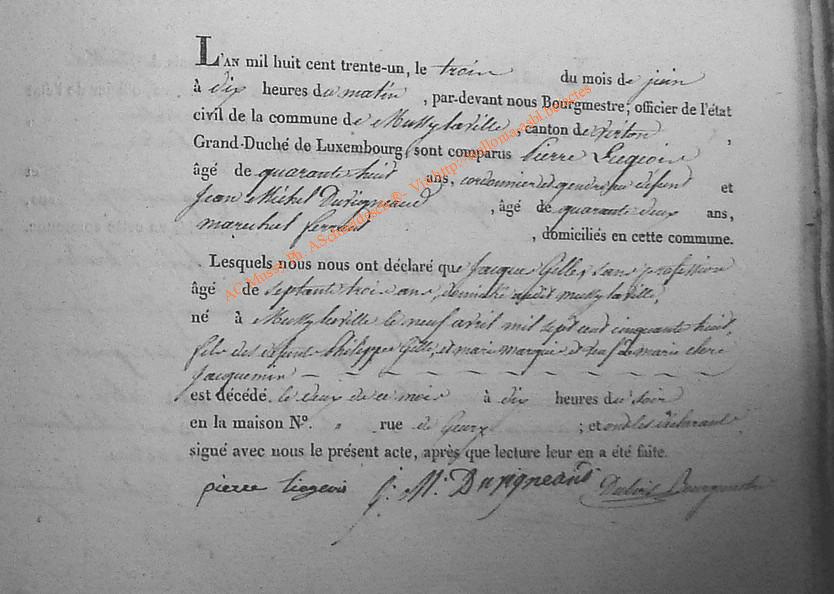 L'AN mil huit cent trente-un, le trois du mois de juin
à dix heures du matin, par-devant nous Bourgmestre, officier de l'état
civil de la commune de Mussy la ville, canton de Virton,
Grand-Duché de Luxembourg, sont comparus Pierre Liegeois
âgé de quarante huit ans, cordonnier et gendre du défunt et
Jean Michel Duvigneaud, âgé de quarante deux ans,
marechal ferrant, domiciliés en cette commune.
Lesquels nous nous ont déclaré que Jacques Gilles, sans profession
âgé de septante trois ans, domicilié audit mussy la ville,
né à Mussy la ville le neuf avril mil sept cent cinquante huit,
fils des défunts Philippe Gille, et marie et veuf de marie
Jacquemin
est décédé le deux de ce mois à dix heures du soir
en la maison N°. " rue de ; et ont les déclarants
signé avec nous le présent acte, après que lecture leur en a été faite.
pierre liegeois J. M. Duvigneaud Bourgmestre
AC Mussy Ph. ASchmidesch ®- Via http://galloma.asbl.be/actes